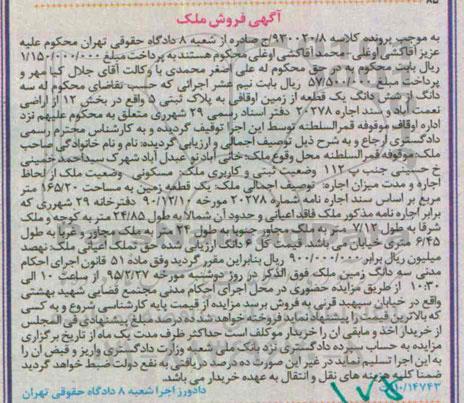 آگهی فروش ملک
به موجب پرونده کلاسه ۹۳۰۰۲۰/۸/ج صادره از شعبه ۸ دادگاه حقوقی تهران محکوم علیه
عزیز آقاکشی اوغلی - محمد آقاکشی اوغلی محکوم هستند به پرداخت مبلغ ۱/۱۵۰/۰۰۰/۰۰۰
ریال بابت محکوم به در حق محکوم له علی اصغر محمدی با وکالت آقای جلال کیا مهر و
پرداخت مبلغ ۵۷/۵۰۰/۰۰۰ ریال بابت نیم عشر اجرائی که حسب تقاضای محکوم له سه
دانگ از شش دانگ یک قطعه از زمین اوقافی به پلاک ثبتی ۵ واقع در بخش ۱۲ از اراضی
نعمت آباد و سند اجاره ۲۰۲۷۸ دفتر اسناد رسمی ۲۹ شهرری متعلق به محکوم علیهم نزد
اداره اوقاف موقوفه قمرالسلطنه توسط این اجرا توقیف گردیده و به کارشناس محترم رسمی
دادگستری ارجاع و به شرح ذیل توصیف اجمالی و ارزیابی گردیده: نام و نام خانوادگی صاحب
ملک: موقوفه قمرالسلطنه محل وقوع ملک: خانی آباد نو عبدل آباد شهرک سیداحمد خمینی
خ حسینی جنب پ ۱۱۲ وضعیت ثبتی و کاربری ملک: مسکونی وضعیت ملک از لحاظ
اجاره و مدت میزان اجاره: توصیف اجمالی ملک: یک قطعه زمین به مساحت ۱۶۵/۲۰ متر
مربع بر اساس سند اجاره نامه شماره ۲۰۲۷۸ مورخه ۹۰/۱۲/۱۰ دفترخانه ۲۹ شهرری که
برابر اجاره نامه مذکور ملک فاقد اعیانی و حدود آن شمالا به طول ۲۴/۸۵ متر به کوچه و ملک
شرقا به طول ۷/۱۲ متر به ملک مجاور جنوبا به طول ۲۴ متر به ملک مجاور و غربا به طول
۶/۴۵ متری خیابان می باشد قیمت کل ۶ دانگ ارزیابی شده حق ملک اعیانی ملک: نهصد
میلیون ریال برابر ۹۰۰/۰۰۰/۰۰۰ ریال بنابراین مقرر گردید وفق ماده ۵۱ قانون اجرای احکام
مدنی سه دانگ زمین ملک فوق الذکر در روز دوشنبه مورخه ۹۵/۲/۲۷ از ساعت ۱۰ الی
۱۰:۳۰ از طریق مزایده حضوری در محل اجرای احکام مدنی مجتمع قضایی شهید بهشتی
واقع در خیابان سپهبد قرنی به فروش برسد مزایده از قیمت پایه کارشناسی شروع و به کسی
که بالاترین قیمت را پیشنهاد نماید فروخته خواهد شد ده درصد مبلغ پیشنهادی فی المجلس
از خریدار اخذ و مابقی آن را خریدار موکلف است حداکثر ظرف مدت یک ماه از تاریخ برگزاری
مزایده به حساب سپرده دادگستری نزد بانک ملی شعبه وزارت دادگستری واریز و قبض آن را
به این اجرا تسلیم نماید در غیر این صورت ده درصد دریافتی به نفع دولت ضبط خواهد گردید
ضمنا کلیه هزینه های نقل و انتقال به عهده خریدار می باشد.
۱۱۰/۱۴۷۴۳ دادورز اجرا شعبه ۸ دادگاه حقوقی تهران